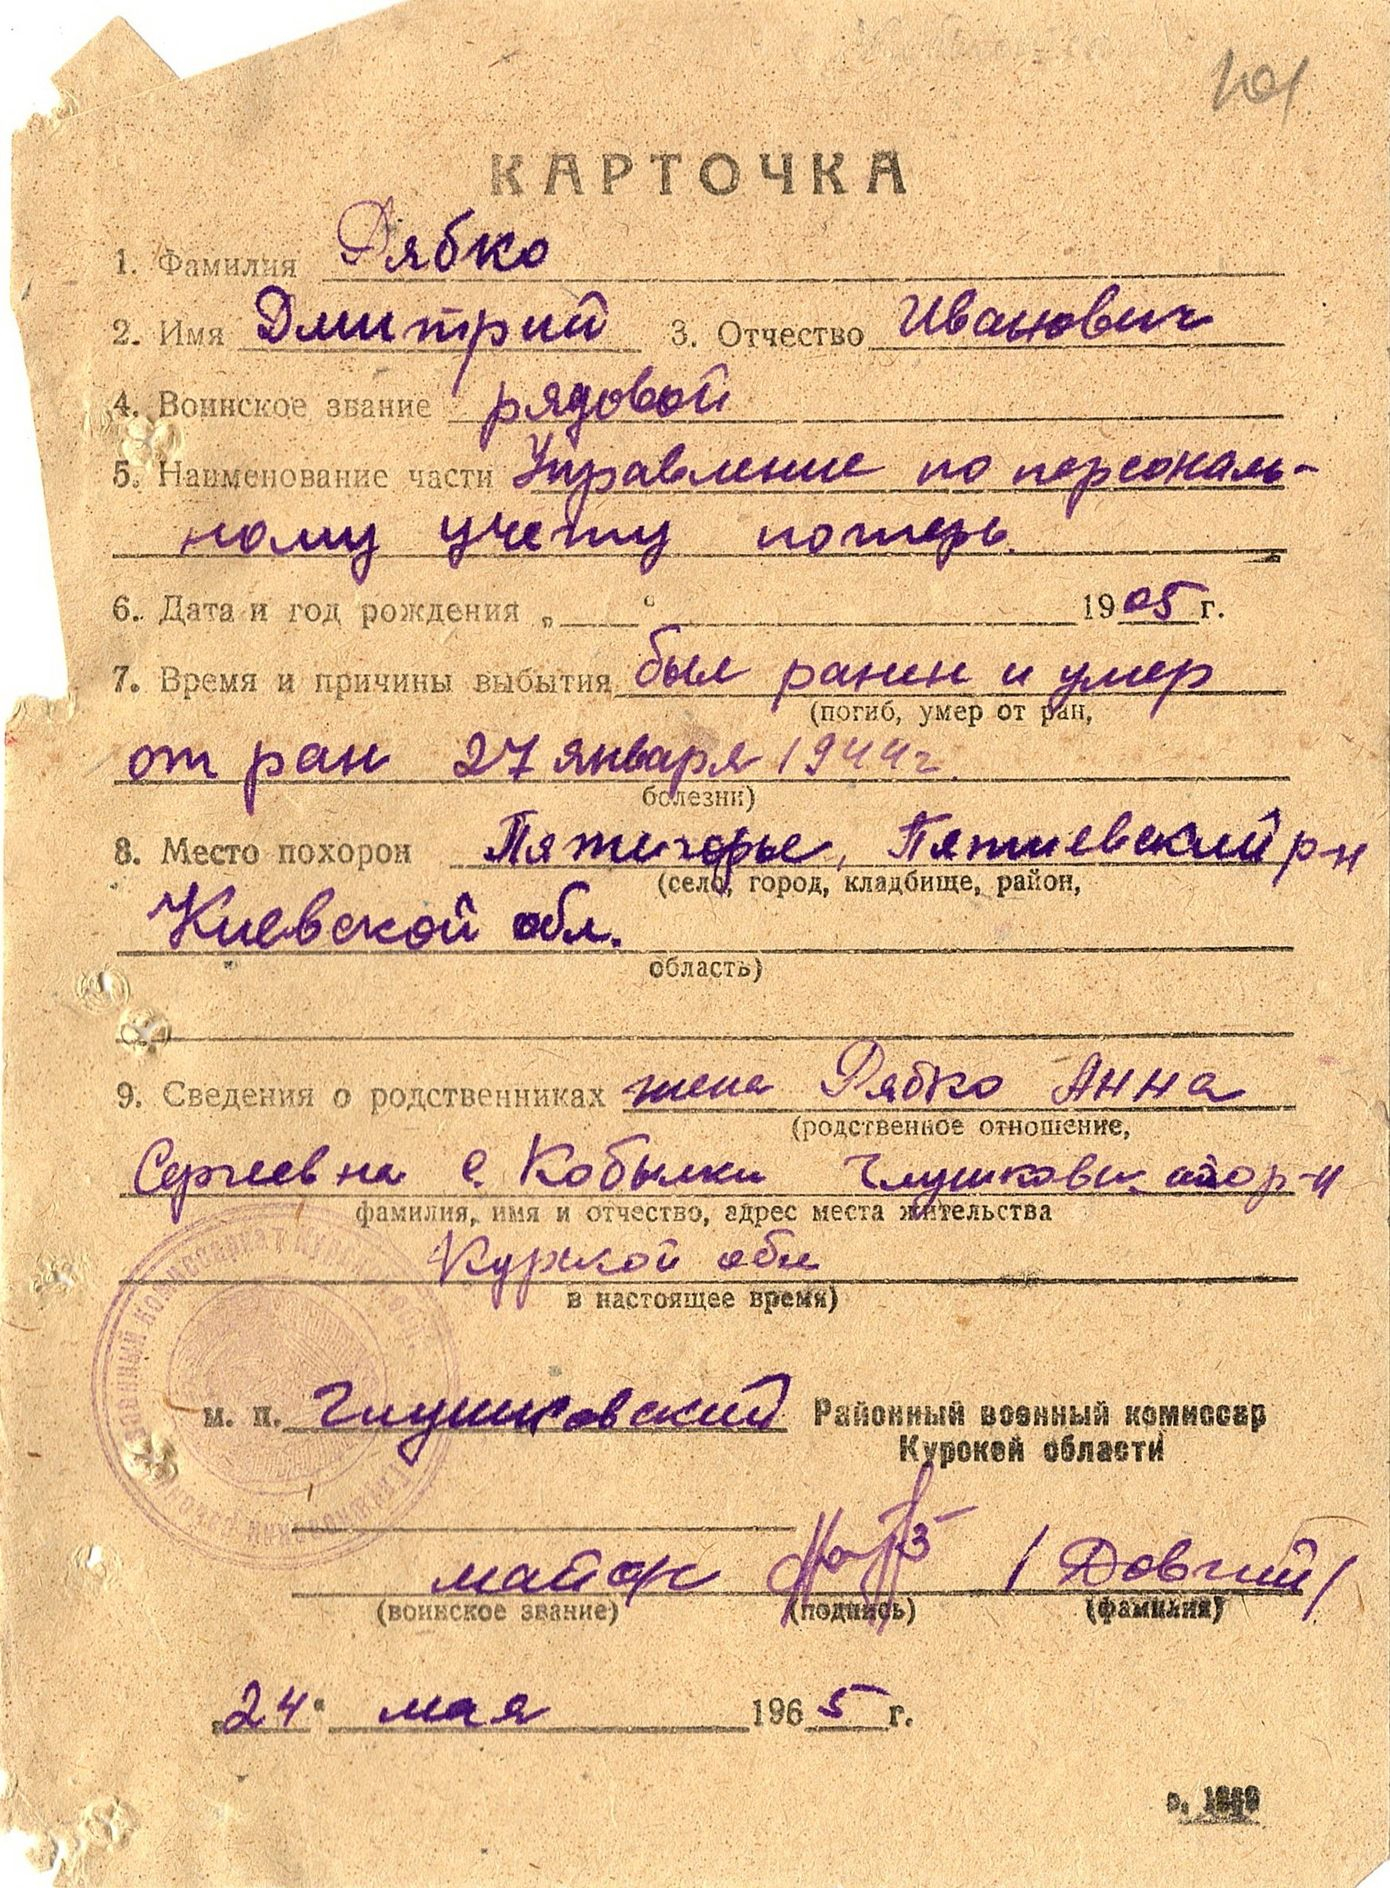 101
КАРТОЧКА
1. Фамилия Рябко
2. Имя Дмитрий 3. Отчество Иванович
4. Воинское звание рядовой
5. Наименование части Управление по персональ-
ному учету потерь.
6. Дата и год рождения „ “ 1905 г.
7. Время и причины выбытия был ранен и умер
(погиб, умер от ран,
от ран 27 января 1944г.
болезни)
8. Место похорон Пятигорье, Петиевский р-н
(село, город, кладбище, район,
Киевской обл.
область)
9. Сведения о родственниках жена Рябко Анна
(родственное отношение,
Сергеевна с. Кобылки Глушковск. р-н
фамилия, имя и отчество, адрес места жительства
Курской обл
в настоящее время)
м. п. Глушковский Районный военный комиссар
Курской области
майор / Довгий /
(воинское звание) (подпись) (фамилия)
„24“ мая 1965 г.